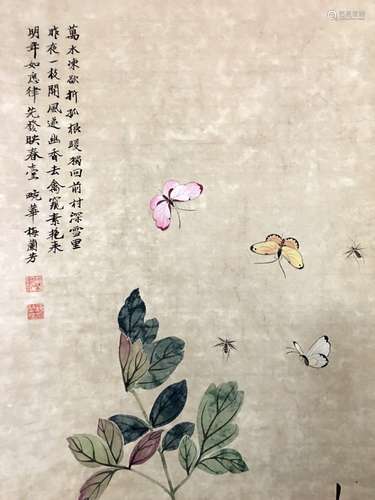 萬木凍欲折孤根暖獨回前村深雪里
昨夜一枝開風遞幽香去禽窺素艷來
明年如應律先發映春臺 畹華 梅蘭芳